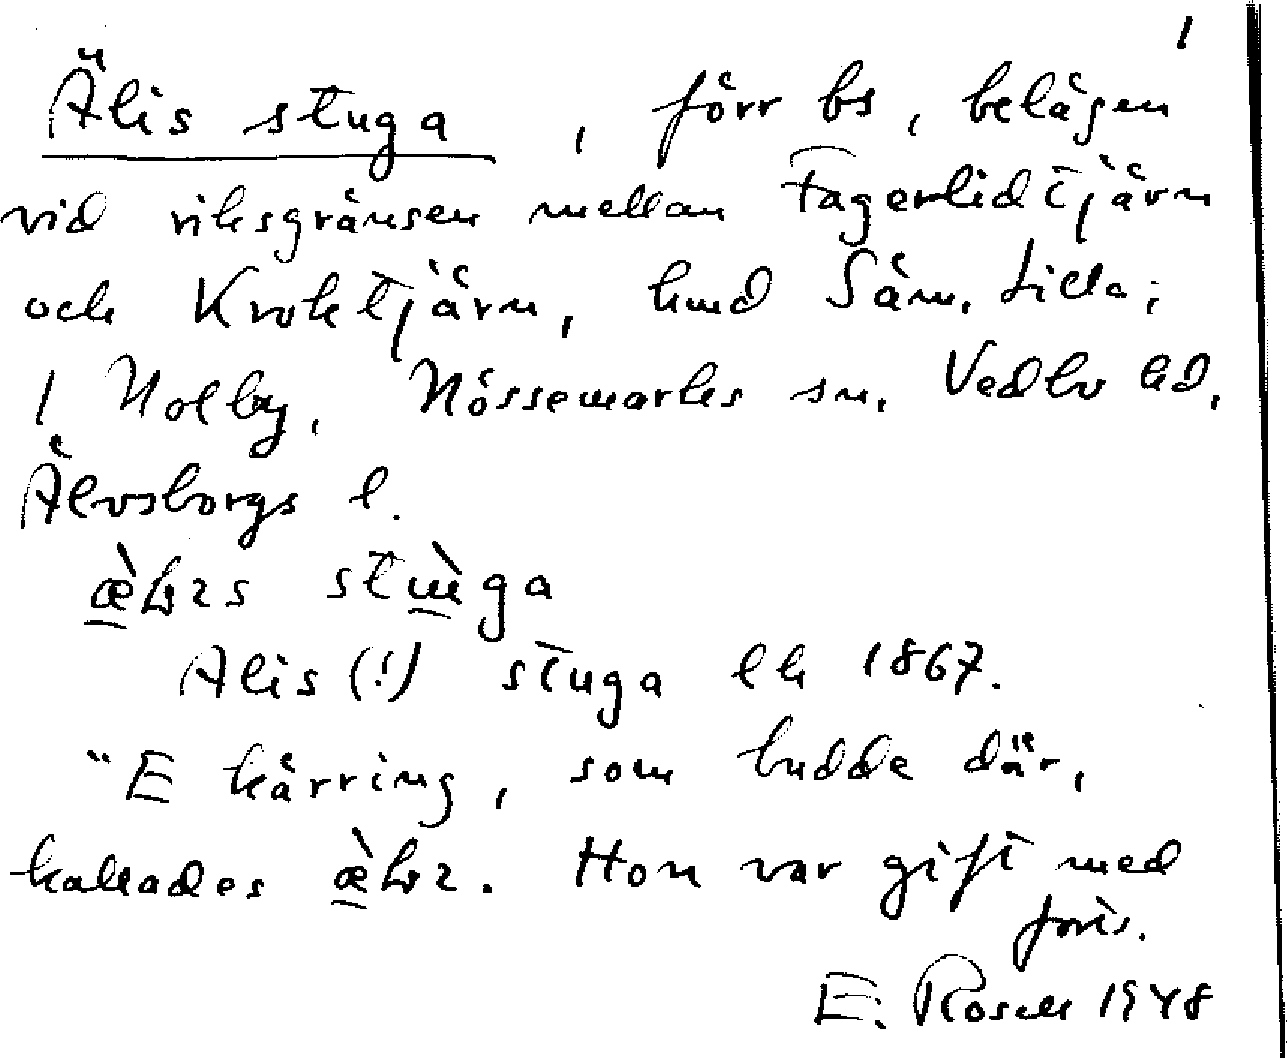 1
Älis stuga, förr bs, belägen
vid riksgränsen mellan Fagerlidtjärn
och Kroktjärn, hmd Säm. Lilla;
1 Nolby, Nössemarks sn. Vedbo hd,
Älvsborgs l.
stɯ̀ga
Alis (!) stuga lk 1867.
"E kärring, som budde där,
kallades. Hon var gift med
forts.
E. Rosell 1948